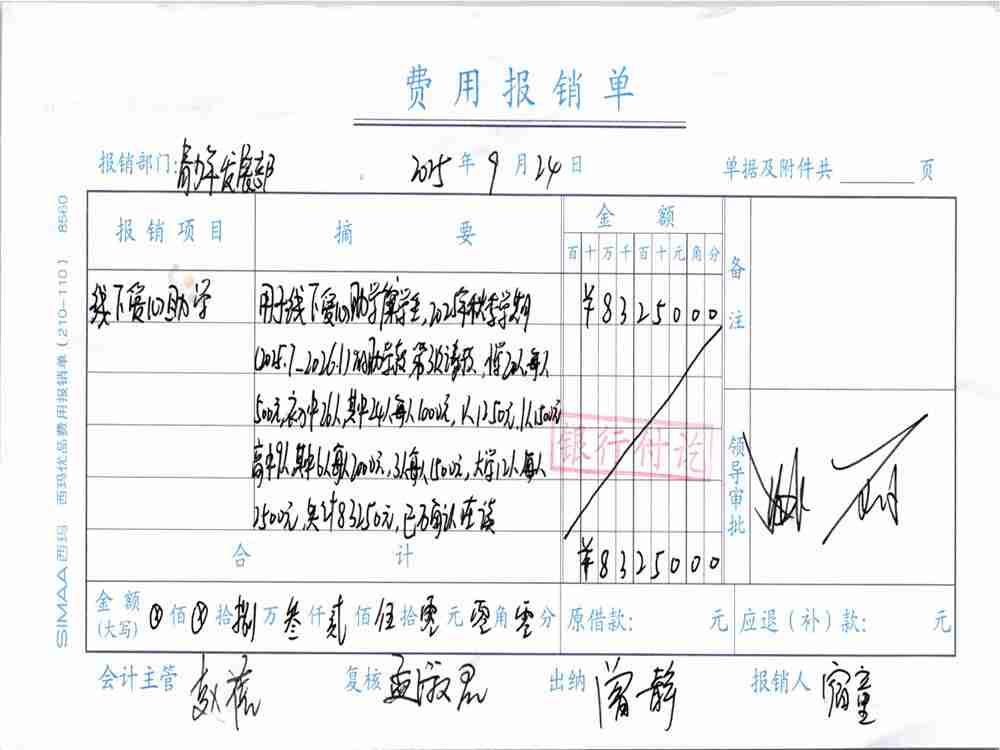 费用报销单
报销部门:青少年发展部 2025年9月24日 单据及附件共 页
报销项目 摘要 金额 备注
百十万千百十元角分
线下爱心助学 用于线下爱心助学 学生,2025年秋季学期 ¥8325000
(2025.7-2026.1)的助学款第3次请款, 2人每人
500元,初中26人,其中24人每人1000元,1人1250元,1人1500元
高中9人,其中6人每人2000元,3人每人1500元,大学12人每人
2500元,共计83250元,已确认在读
银行付讫
领导审批
合计 ¥8325000
金额(大写) 佰 拾捌万叁仟贰佰伍拾零元零角零分 原借款: 元 应退(补)款: 元
会计主管 赵 复核 孟淑君 出纳 曾静 报销人 宿童
SIMAA 西玛 西玛优品费用报销单(210-110) 8560